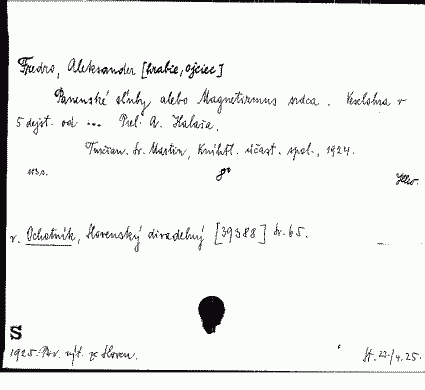 Fredro, Aleksander [hrabie, ojciec]
Panenské sľuby alebo Magnetizmus srdca. Veselohra v
5 dejst. od ... Prel. A. Halaša.
Turčian. Sv. Martin, Knihtl. účast. spol., 1924.
113 s. 8°
v. Ochotník, Slovenský divadelný [39388] Sv. 65.
S
1925. Pov. výt. ze Sloven. St. 23/4. 25.